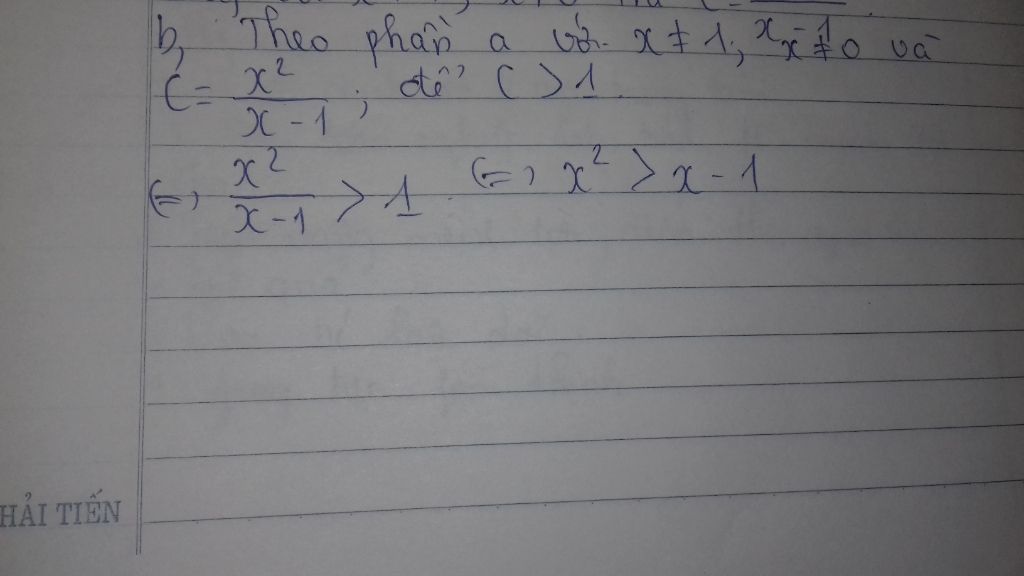 b, Theo phần a với x ≠ 1; x ≠ 0 và
C = x² / x - 1 ; để C > 1
<=> x² / x-1 > 1 <=> x² > x - 1
HẢI TIẾN